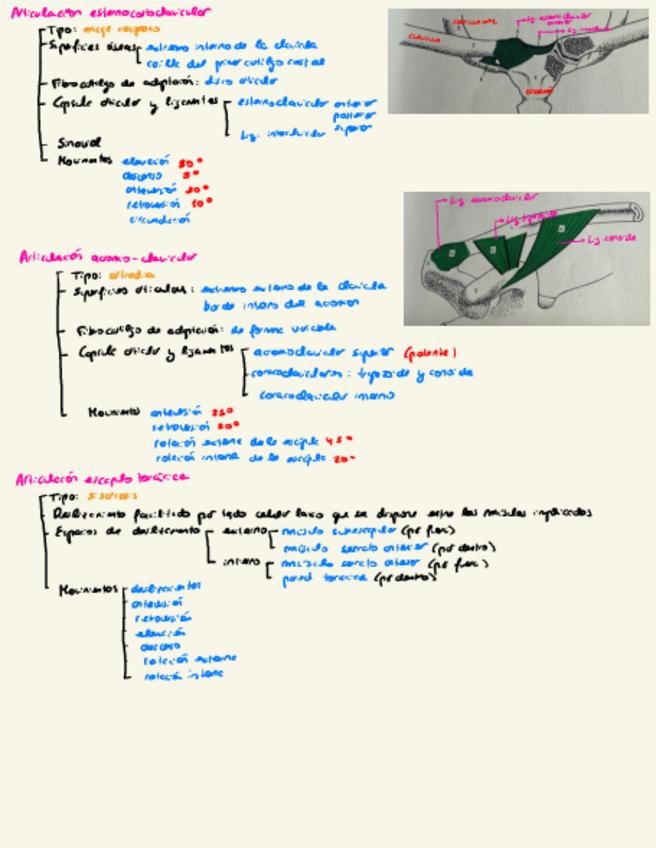 Articulación esternocostoclavicular
Tipo: encaje recíproco
Superficies óseas: extremo interno de la clavícula
carilla del primer cartílago costal
Fibrocartílago de adaptación: disco articular
Capsula articular y ligamentos
esternoclavicular anterior
posterior
superior
Lig. interclavicular
Sinovial
Movimientos
elevación 30°
descenso 5°
antepulsión 30°
retropulsión 10°
circunducción
CLAVICULA
ESTERNON
Articulación acromio-clavicular
Tipo: artrodia
Superficies articulares: extremo externo de la clavicula
borde interno del acromion
Fibrocartílago de adaptación: de forma variable
Capsula articular y ligamentos
acromioclavicular superior (potente)
coracoclaviculares: trapezoide y conoide
coracoclavicular interno
Movimientos
antepulsión
retropulsión 30°
rotación externa de la escápula 45°
rotación interna de la escápula 20°
Lig. acromioclavicular
Lig. trapezoide
Lig. conoide
Articulación escapulo torácica
Tipo: sisarcosis
Deslizamiento facilitado por tejido celular laxo que se dispone entre los músculos implicados
Espacios de deslizamiento
externo
músculo subescapular (por fuera)
músculo serrato anterior (por dentro)
interno
músculo serrato anterior (por fuera)
pared torácica (por dentro)
Movimientos
deslizamientos
antepulsión
retropulsión
elevación
descenso
rotación externa
rotación interna